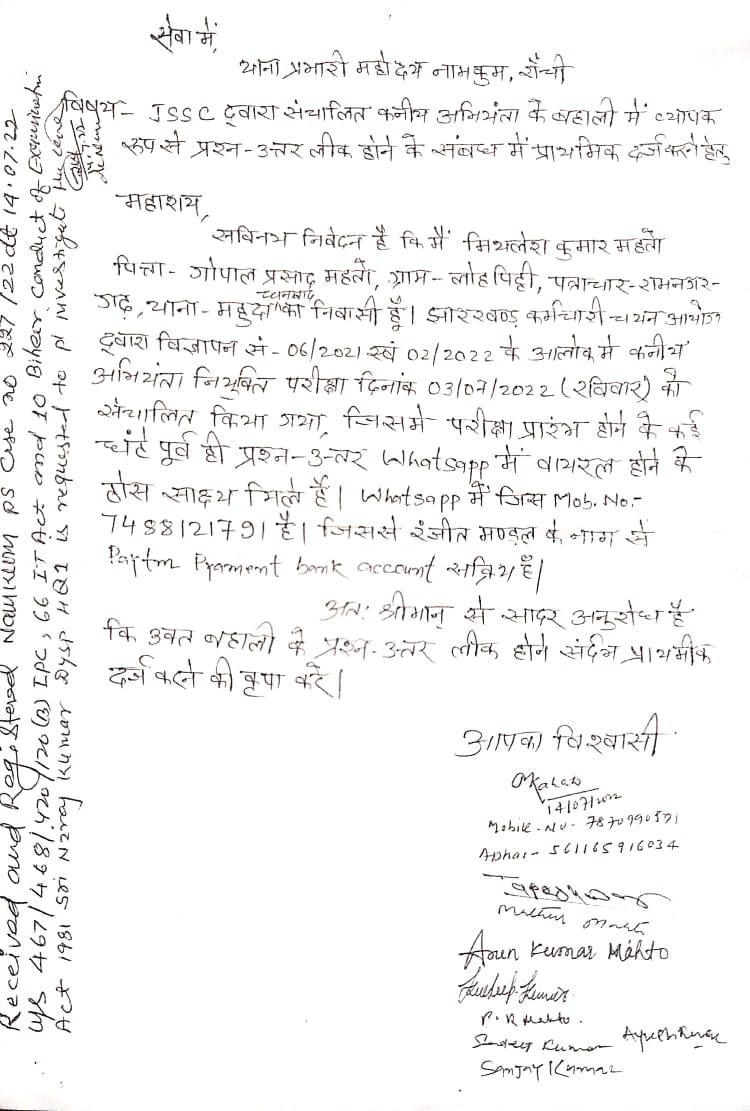 सेवा में,
थाना प्रभारी महोदय नामकुम, राँची
विषय- JSSC द्वारा संचालित कनीय अभियंता के बहाली में व्यापक
रूप से प्रश्न-उत्तर लीक होने के संबंध में प्राथमिक दर्ज करने हेतु
महाशय,
सविनय निवेदन है कि मैं मिथलेश कुमार महतो
पिता- गोपाल प्रसाद महतो, ग्राम- लोहपिट्टी, पत्राचार- रामनगर-
गढ़, थाना- महुदा धनबाद का निवासी हूँ। झारखण्ड कर्मचारी चयन आयोग
द्वारा विज्ञापन सं- 06/2021 एवं 02/2022 के आलोक मे कनीय
अभियंता नियुक्ति परीक्षा दिनांक 03/07/2022 (रविवार) को
संचालित किया गया, जिसमे परीक्षा प्रारंभ होने के कई
घंटे पूर्व ही प्रश्न-उत्तर Whatsapp में वायरल होने के
ठोस साक्ष्य मिले हैं। Whatsapp में जिस Mob. No.-
7488121791 है। जिससे रंजीत मण्डल के नाम से
Paytm Pyament bank account सक्रिय हैं।
अतः श्रीमान् से सादर अनुरोध है
कि उक्त बहाली के प्रश्न-उत्तर लीक होने संदर्भ प्राथमीक
दर्ज करने की कृपा करें।
आपका विश्वासी
14/07/2022
Mobile-No- 7870990571
Adhar- 561165916034
Arun Kumar Mahto
Kuldeep Kumar
P. R Mahto.
Kumar
Sanjay Kumar
Received and Registered Namkum PS Case no 227/22 dt 14.07.22
U/S 467/468/420/120(B) IPC, 66 IT Act and 10 Bihar Conduct of Examination
Act 1981 Sri Niraj Kumar Dysp HQ1 is requested to pl investigate the case